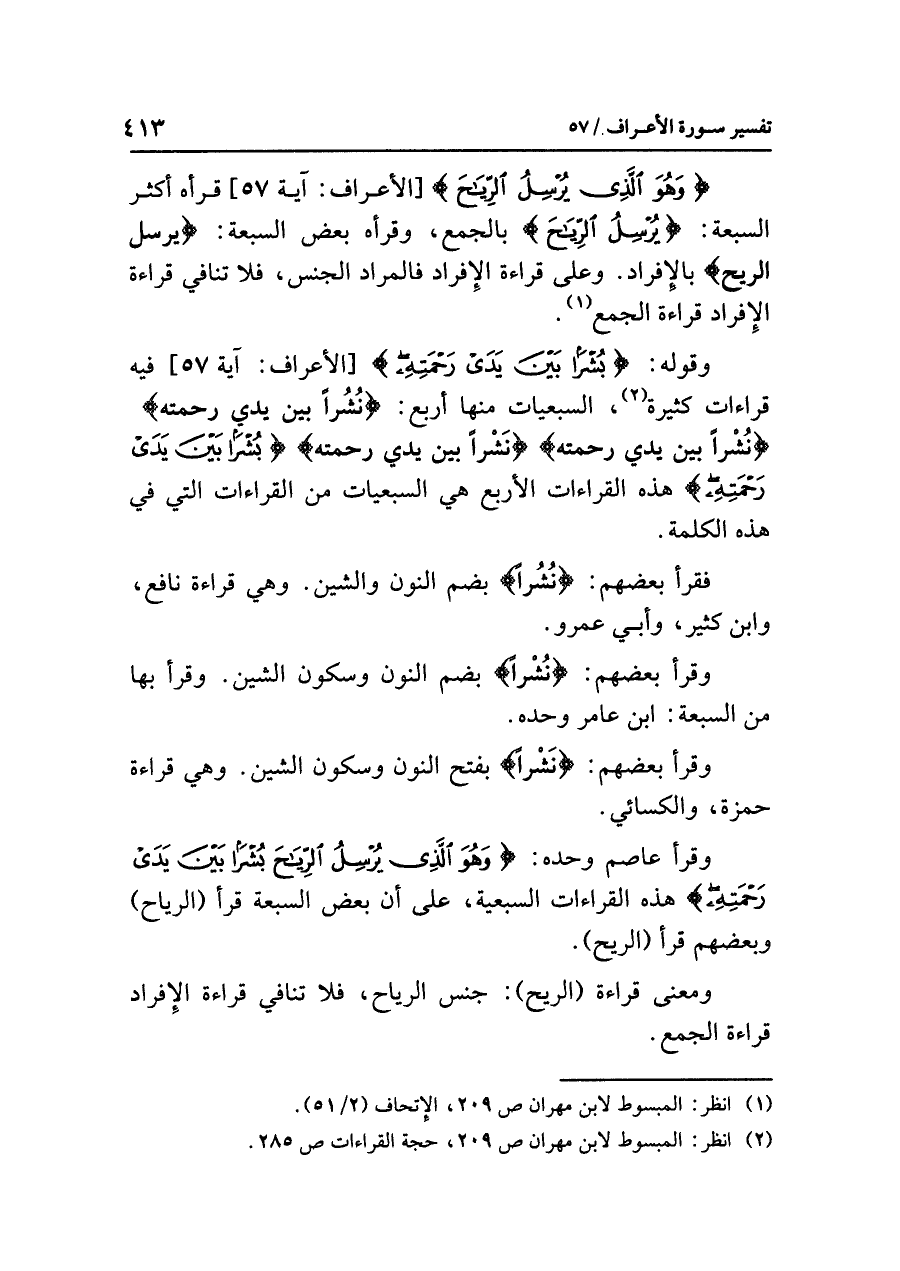 تفسير سورة الأعراف / ٥٧
٤١٣
﴿ وَهُوَ ٱلَّذِى يُرْسِلُ ٱلرِّيَٰحَ ﴾ [الأعراف: آية ٥٧] قرأه أكثر
السبعة: ﴿يُرْسِلُ ٱلرِّيَٰحَ ﴾ بالجمع، وقرأه بعض السبعة: ﴿يرسل
الريح﴾ بالإفراد. وعلى قراءة الإفراد فالمراد الجنس، فلا تنافي قراءة
الإفراد قراءة الجمع(١).
وقوله: ﴿ بُشْرًۢا بَيْنَ يَدَىْ رَحْمَتِهِۦۖ ﴾ [الأعراف: آية ٥٧] فيه
قراءات كثيرة(٢)، السبعيات منها أربع: ﴿نُشُراً بين يدي رحمته﴾
﴿نُشْراً بين يدي رحمته﴾ ﴿نَشْراً بين يدي رحمته﴾ ﴿ بُشْرًۢا بَيْنَ يَدَىْ
رَحْمَتِهِۦۖ ﴾ هذه القراءات الأربع هي السبعيات من القراءات التي في
هذه الكلمة.
فقرأ بعضهم: ﴿نُشُراً﴾ بضم النون والشين. وهي قراءة نافع،
وابن كثير، وأبي عمرو.
وقرأ بعضهم: ﴿نُشْراً﴾ بضم النون وسكون الشين. وقرأ بها
من السبعة: ابن عامر وحده.
وقرأ بعضهم: ﴿نَشْراً﴾ بفتح النون وسكون الشين. وهي قراءة
حمزة، والكسائي.
وقرأ عاصم وحده: ﴿ وَهُوَ ٱلَّذِى يُرْسِلُ ٱلرِّيَٰحَ بُشْرًۢا بَيْنَ يَدَىْ
رَحْمَتِهِۦۖ ﴾ هذه القراءات السبعية، على أن بعض السبعة قرأ (الرياح)
وبعضهم قرأ (الريح).
ومعنى قراءة (الريح): جنس الرياح، فلا تنافي قراءة الإفراد
قراءة الجمع.
(١) انظر: المبسوط لابن مهران ص ٢٠٩، الإتحاف (٢/ ٥١).
(٢) انظر: المبسوط لابن مهران ص ٢٠٩، حجة القراءات ص ٢٨٥.